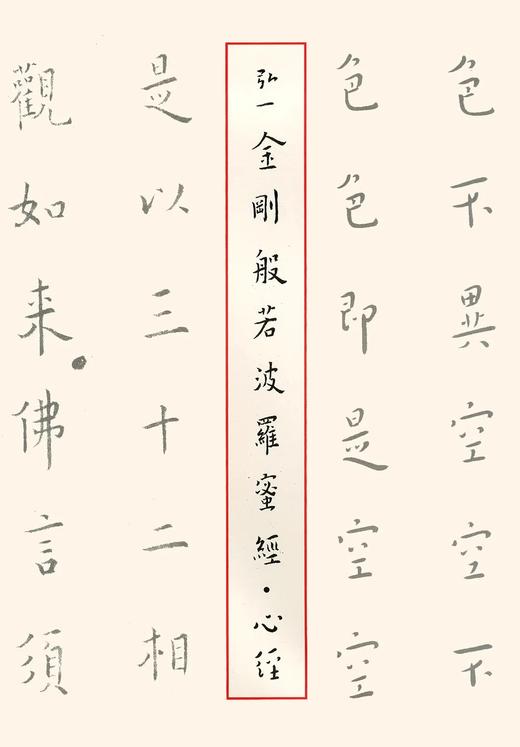 色不異空空不
色色即是空空
弘一金剛般若波羅蜜經・心經
是以三十二相
觀如来佛言須